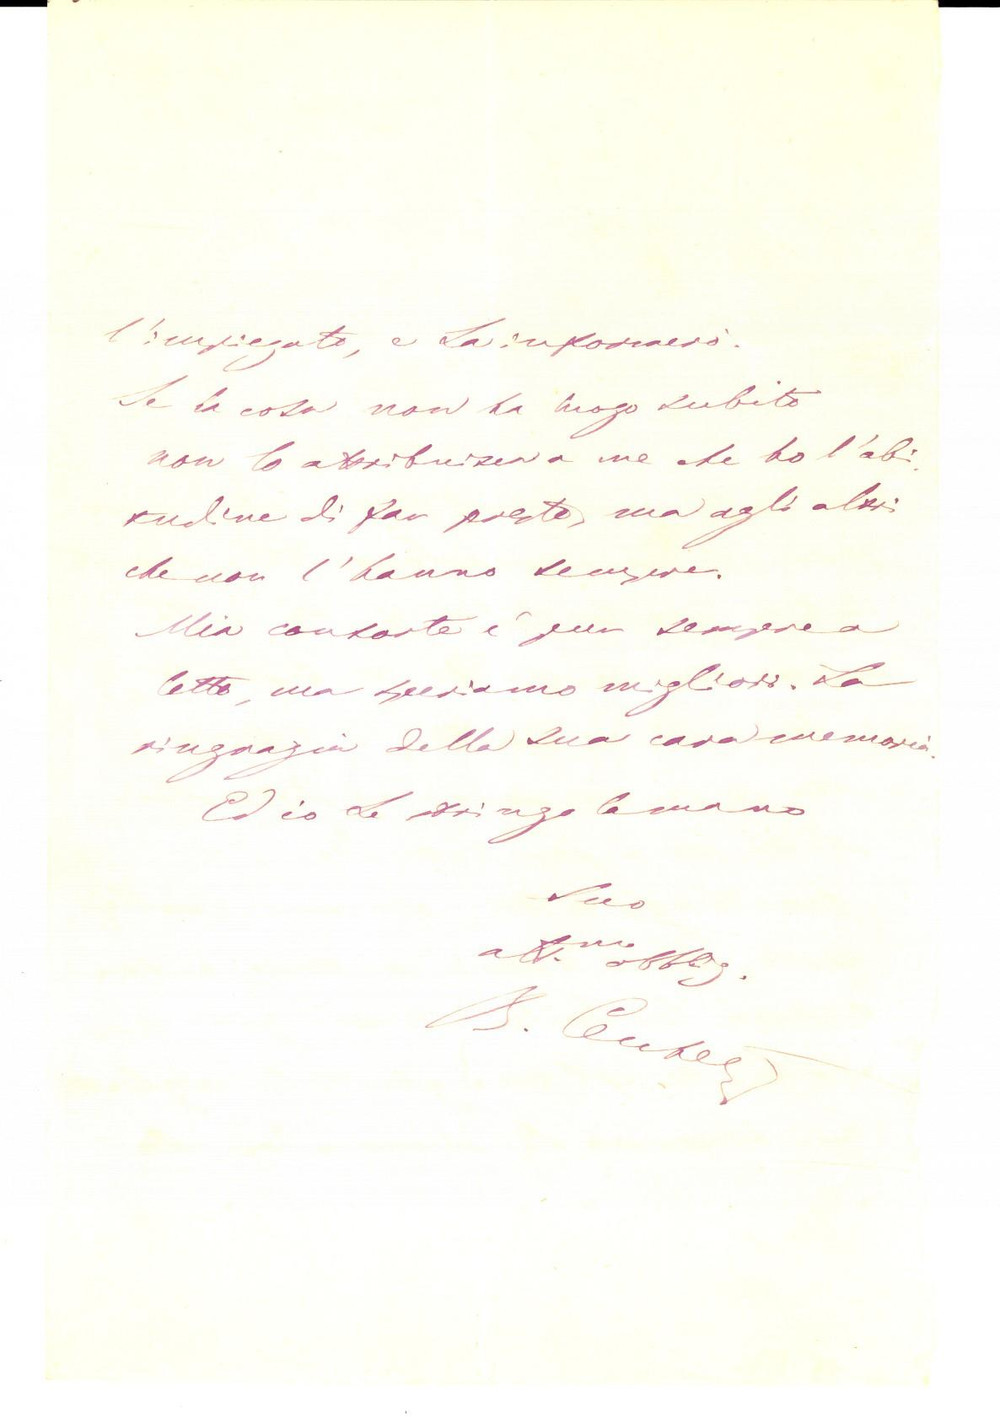 l'impiegato, e La informerò.
Se la cosa non ha luogo subito
non lo attribuisca a me che ho l'abi-
tudine di far presto, ma agli altri
che non l'hanno sempre.
Mia consorte è pur sempre a
letto, ma speriamo migliori. La
ringrazia della sua cara memoria.
Ed io Le stringo la mano
Suo
att.mo obblig.
B.